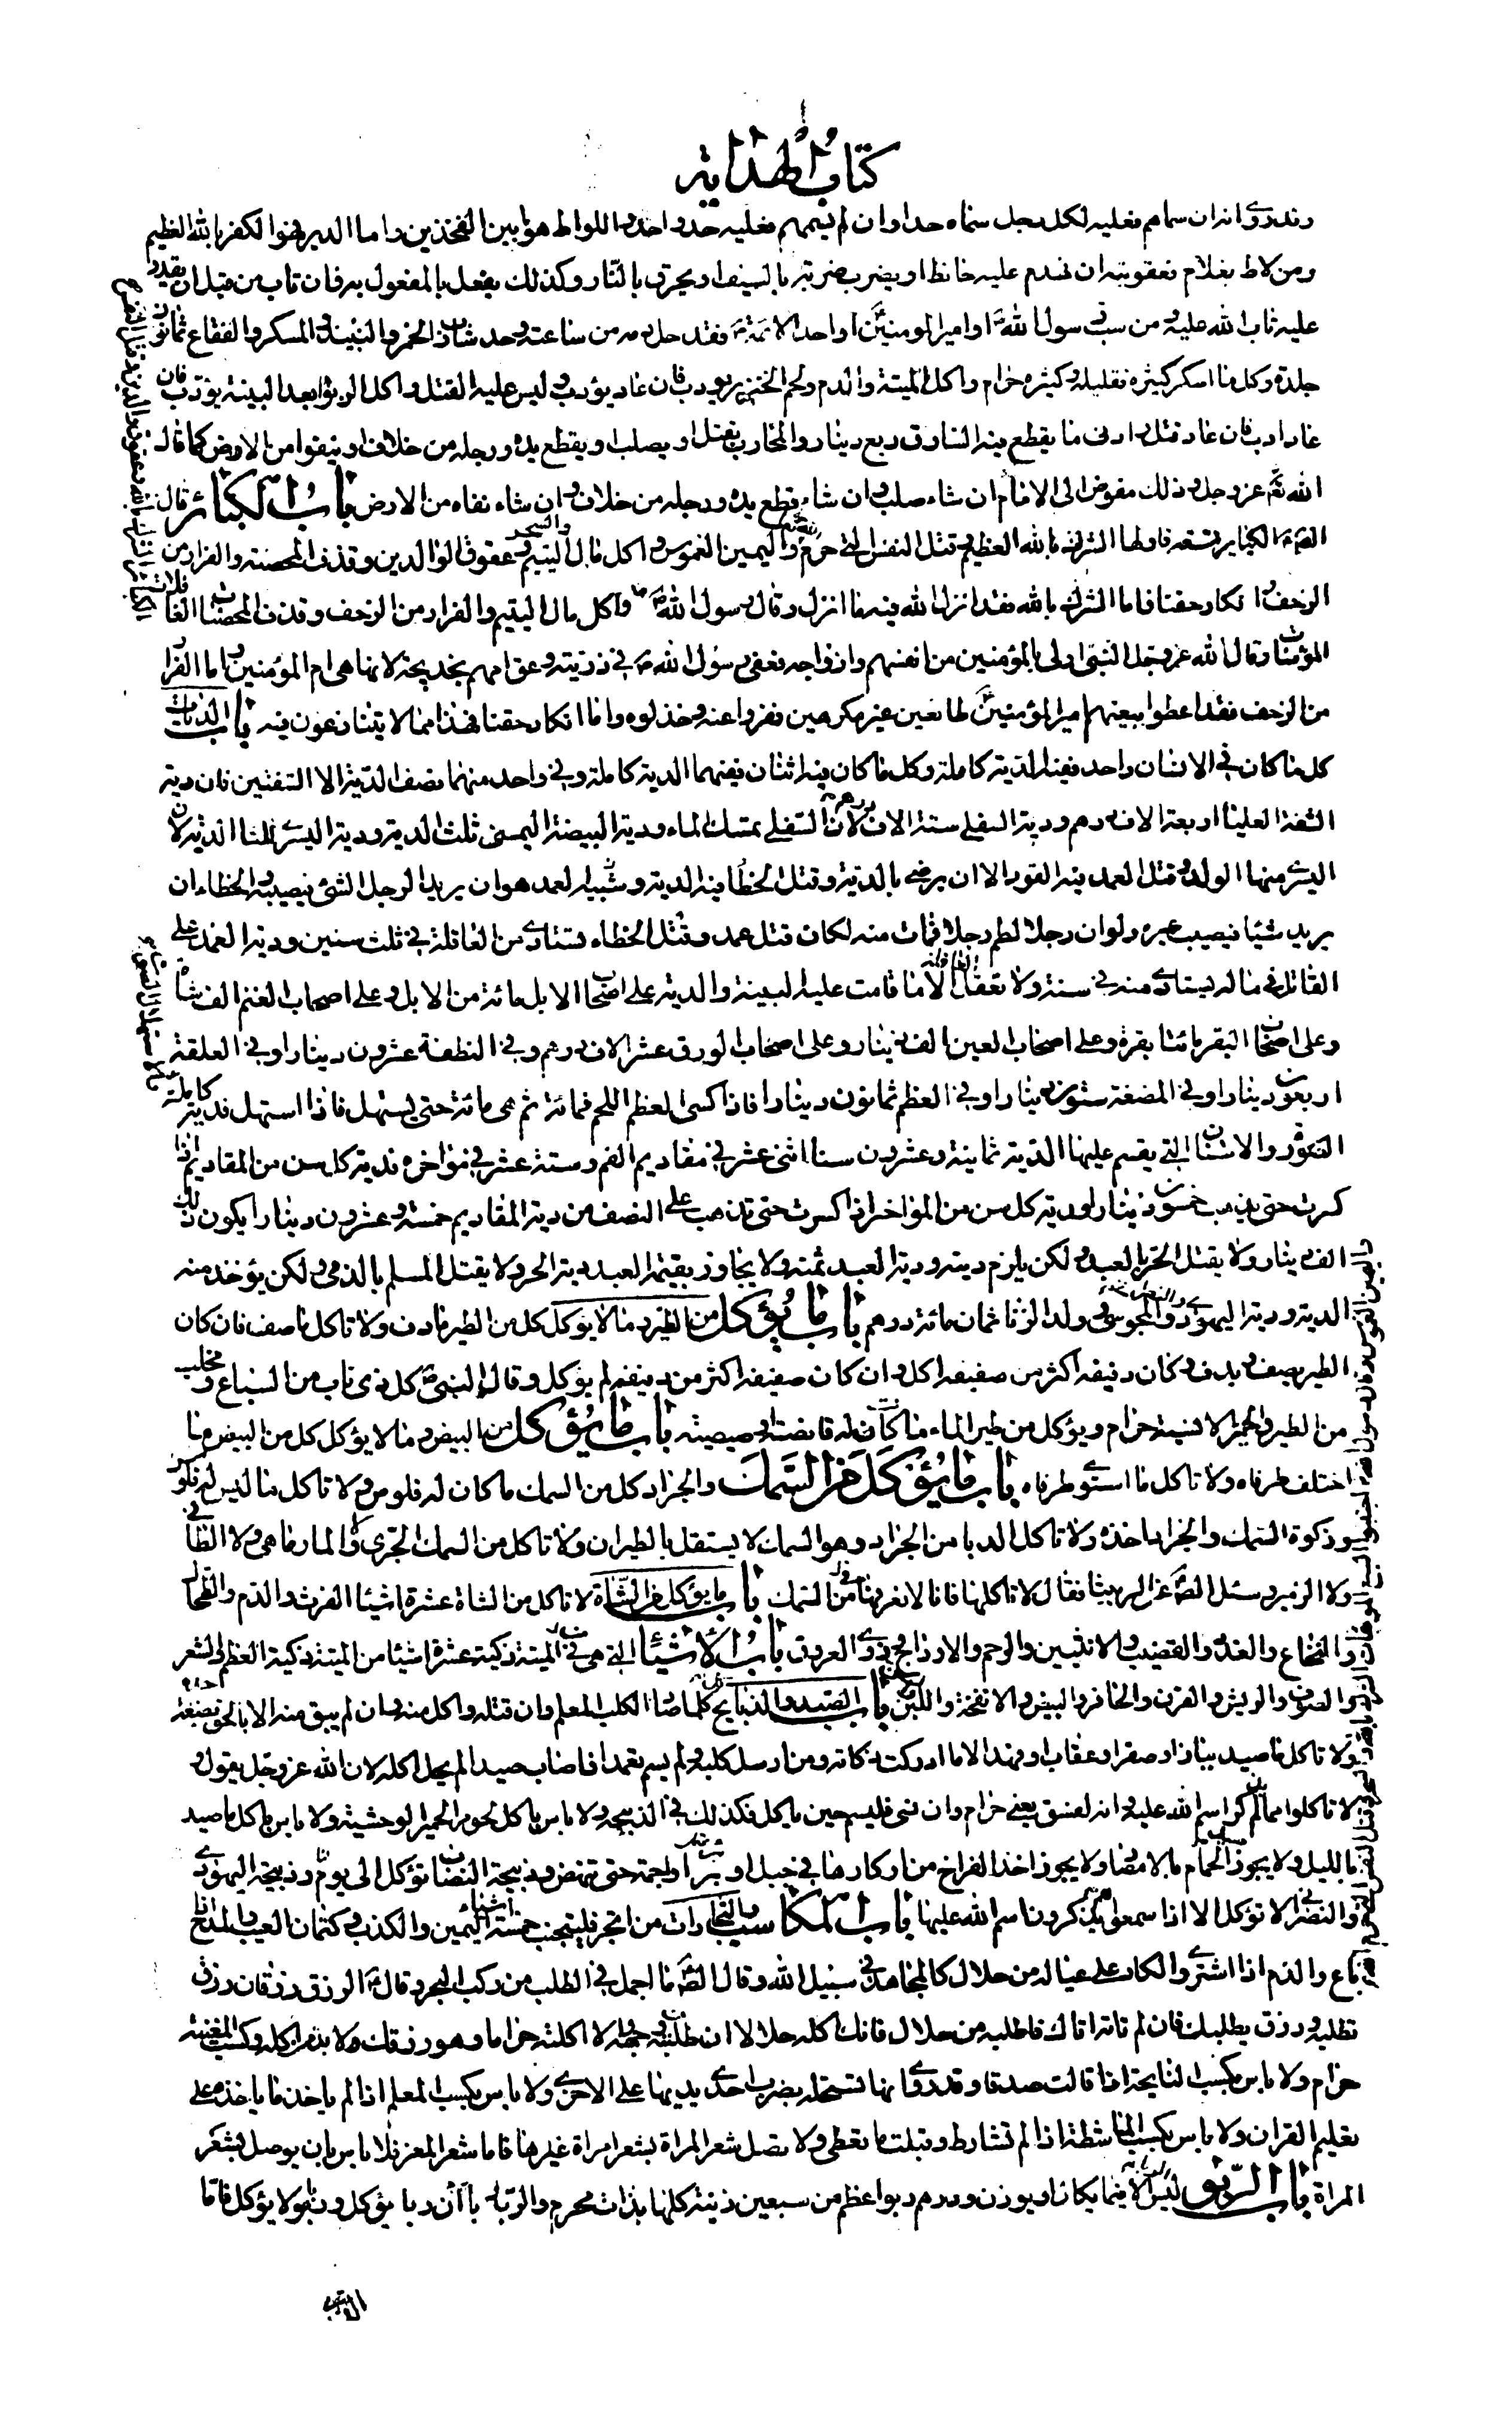 كتاب الهداية
وندري انه ان سماهم فعليه لكل رجل سماه حدا وان لم يسمهم فعليه حد واحد واللواط هو بين الفخذين واما الدبر فهو الكفر بالله العظيم
ومن لاط بغلام فعقوبته ان يهدم عليه حائط او يضرب ضربة بالسيف او يحرق بالنار وكذلك يفعل بالمفعول به فان تاب من قبل ان يقدر
عليه تاب الله عليه ومن سب رسول الله او امير المومنين او احد الائمة فقد حل دمه من ساعته وحد شارب الخمر والنبيذ والمسكر والفقاع ثمانون
جلدة وكل ما اسكر كثيره فقليله وكثيره حرام واكل الميتة والدم ولحم الخنزير يودب فان عاد يؤدب وليس عليه القتل واكل الربوا بعد البينة يؤدب فان
عاد ادب فان عاد قتل وادنى ما يقطع فيه السارق ربع دينار والمحارب يقتل او يصلب او يقطع يده ورجله من خلاف او ينفوا من الارض كما قال
الله عز وجل وذلك مفوض الى الامام ان شاء صلب وان شاء قطع يده ورجله من خلاف وان شاء نفاه من الارض باب الكبائر قال
الكباير تسعة فاولها الشرك بالله العظيم وقتل النفس التي حرم الله واليمين الغموس واكل مال اليتيم والسحر وعقوق الوالدين وقذف المحصنة والفرار من
الزحف وانكار حقنا فاما الشرك بالله فقد انزل الله فينا ما انزل وقال رسول الله واكل مال اليتيم والفرار من الزحف وقذف المحصنات الغافلات
المؤمنات وقال الله عز وجل النبي اولى بالمؤمنين من انفسهم وازواجه فعق رسول الله في ذريته وعق امهم بخديجة لانها هي ام المؤمنين واما الفرار
من الزحف فقد اعطوا بيعتهم امير المؤمنين طائعين غير مكرهين ففروا عنه وخذلوه واما انكار حقنا فهذا مما لا يتنازعون فيه باب الديات
كل ما كان في الانسان واحد ففيه الدية كاملة وكل ما كان فيه اثنان ففيهما الدية كاملة وفي واحد منهما نصف الدية الا الشفتين فان دية
الشفة العليا اربعة الاف درهم ودية السفلى ستة الاف درهم لان السفلى تمسك الماء ودية البيضة اليمنى ثلث الدية ودية اليسرى ثلثا الدية لان
اليسرى منها الولد وقتل العمد فيه القود الا ان يرضى بالدية وقتل الخطا فيه الدية وشبيه العمد هو ان يريد الرجل الشئ فيصيبه والخطاء ان
يريد شيئا فيصيب غيره ولو ان رجلا لطم رجلا فمات منه لكان قتل عمد وقتل الخطاء تستادى من العاقلة في ثلث سنين ودية العمد على
القاتل في ماله يستادى منه في سنة ولا تعقل العاقلة الا ما قامت عليه البينة والدية على اصحاب الابل مائة من الابل وعلى اصحاب الغنم الف شاة
وعلى اصحاب البقر مائتا بقرة وعلى اصحاب العين الف دينار وعلى اصحاب الورق عشر الاف درهم وفي النطفة عشرون دينارا وفي العلقة
اربعون دينارا وفي المضغة ستون دينارا وفي العظم ثمانون دينارا فاذا كسى العظم اللحم فمائة ثم هي مائة حتى يستهل فاذا استهل فدية كاملة
والاسنان التي يقسم عليها الدية ثمانية وعشرون سنا اثني عشر في مقاديم الفم وستة عشر في مواخره فدية كل سن من المقاديم اذا
كسرت حتى يذهب خمسون دينارا ودية كل سن من المواخر اذا كسرت حتى تذهب على النصف من دية المقاديم خمسة وعشرون دينارا يكون ذلك
الف دينار ولا يقتل الحر بالعبد ولكن يلزم ديته ودية العبد ثمنه ولا يجاوز بقيمة العبد دية الحر ولا يقتل المسلم بالذمي ولكن يؤخذ منه
الدية ودية اليهودي والمجوسي وولد الزنا ثمان مائة درهم باب ما يؤكل من الطير وما لا يوكل كل من الطير ما دف ولا تاكل ما صف فان كان
الطير يصف ويدف وكان دفيفه اكثر من صفيفه اكل وان كان صفيفه اكثر من دفيفه لم يؤكل وقال النبي كل ذي ناب من السباع ومخلب
من الطير والحمير الانسية حرام ويؤكل من طير الماء ما كانت له قانصة او صيصية باب ما يؤكل من البيض وما لا يؤكل كل من البيض ما
اختلف طرفاه ولا تاكل ما استوى طرفاه باب ما يؤكل من السمك والجراد كل من السمك ما كان له فلوس ولا تاكل ما ليس له فلوس
وذكوة السمك والجراد اخذه ولا تاكل الدبا من الجراد وهو السمك لا يستقل بالطيران ولا تاكل من السمك الجري ولا المارماهي ولا الطافي
ولا الزمير وسئل عن الربيثا فقال لا تاكلها فانا لا نعرفها من السمك باب ما يؤكل من الشاة لا تاكل من الشاة عشرة اشيئا الفرث والدم والطحال
والنخاع والغدد والقضيب والانثيين والرحم والعروق باب الاشيئا التي هي من الميتة ذكية عشرة اشيئا من الميتة ذكية العظم والشعر
والصوف والريش والقرن والحافر والبيض والانفحة واللبن باب الصيد والذبايح كل ما صاد الكلب المعلم وان قتله واكل منه وان لم يبق منه الا
ولا تاكل ما صيد بباز او صقر او عقاب او فهد الا ما ادركت ذكاته ومن ارسل كلبه ولم يسم تعمدا فاصاب صيدا لم يحل اكله لان الله عز وجل يقول
لا تاكلوا مما لم يذكر اسم الله عليه وانه لفسق يعني حرام وان نسي فليسم حين ياكل فكذلك في الذبيحة ولا باس باكل لحوم الحمير الوحشية ولا باس باكل ما صيد
بالليل ولا يجوز الحمام بالامصار ولا يجوز اخذ الفراخ من اوكارها في جبل او بئر او اجمة حتى تنهض وذبيحة النصاب تؤكل الى يوم وذبيحة اليهودي
والنصراني لا تؤكل الا اذا سمعوهم يذكرون اسم الله عليها باب المكاسب والتجارات من اتجر فليجتنب خمسة اشيئا اليمين والكذب وكتمان العيب والمدح اذا
باع والذم اذا اشترى والكاد على عياله من حلال كالمجاهد في سبيل الله وقال ما اجمل في الطلب من ركب البحر وقال الرزق رزقان رزق
تطلبه ورزق يطلبك فان لم تاته اتاك فاطلبه من حلال فانك اكله حلالا ان طلبته والا اكلته حراما وهو رزقك ولا بد من اكله وكسب المغنية
حرام ولا باس بكسب النايحة اذا قالت صدقا وقد روي انها تستحله بضرب احدى يديها على الاخرى ولا باس بكسب المعلم اذا لم ياخذ ما ياخذه على
تعليم القران ولا باس بكسب الماشطة اذا لم تشارط وقبلت ما تعطى ولا تصل شعر المراة بشعر امراة غيرها فاما شعر المعز فلا باس بان يوصل بشعر
المراة باب الربوا ليس الا فيما يكال او يوزن ودرهم ربوا اعظم من سبعين زنية كلها بذات محرم والربوا رباآن ربا يؤكل وربوا لا يؤكل فاما